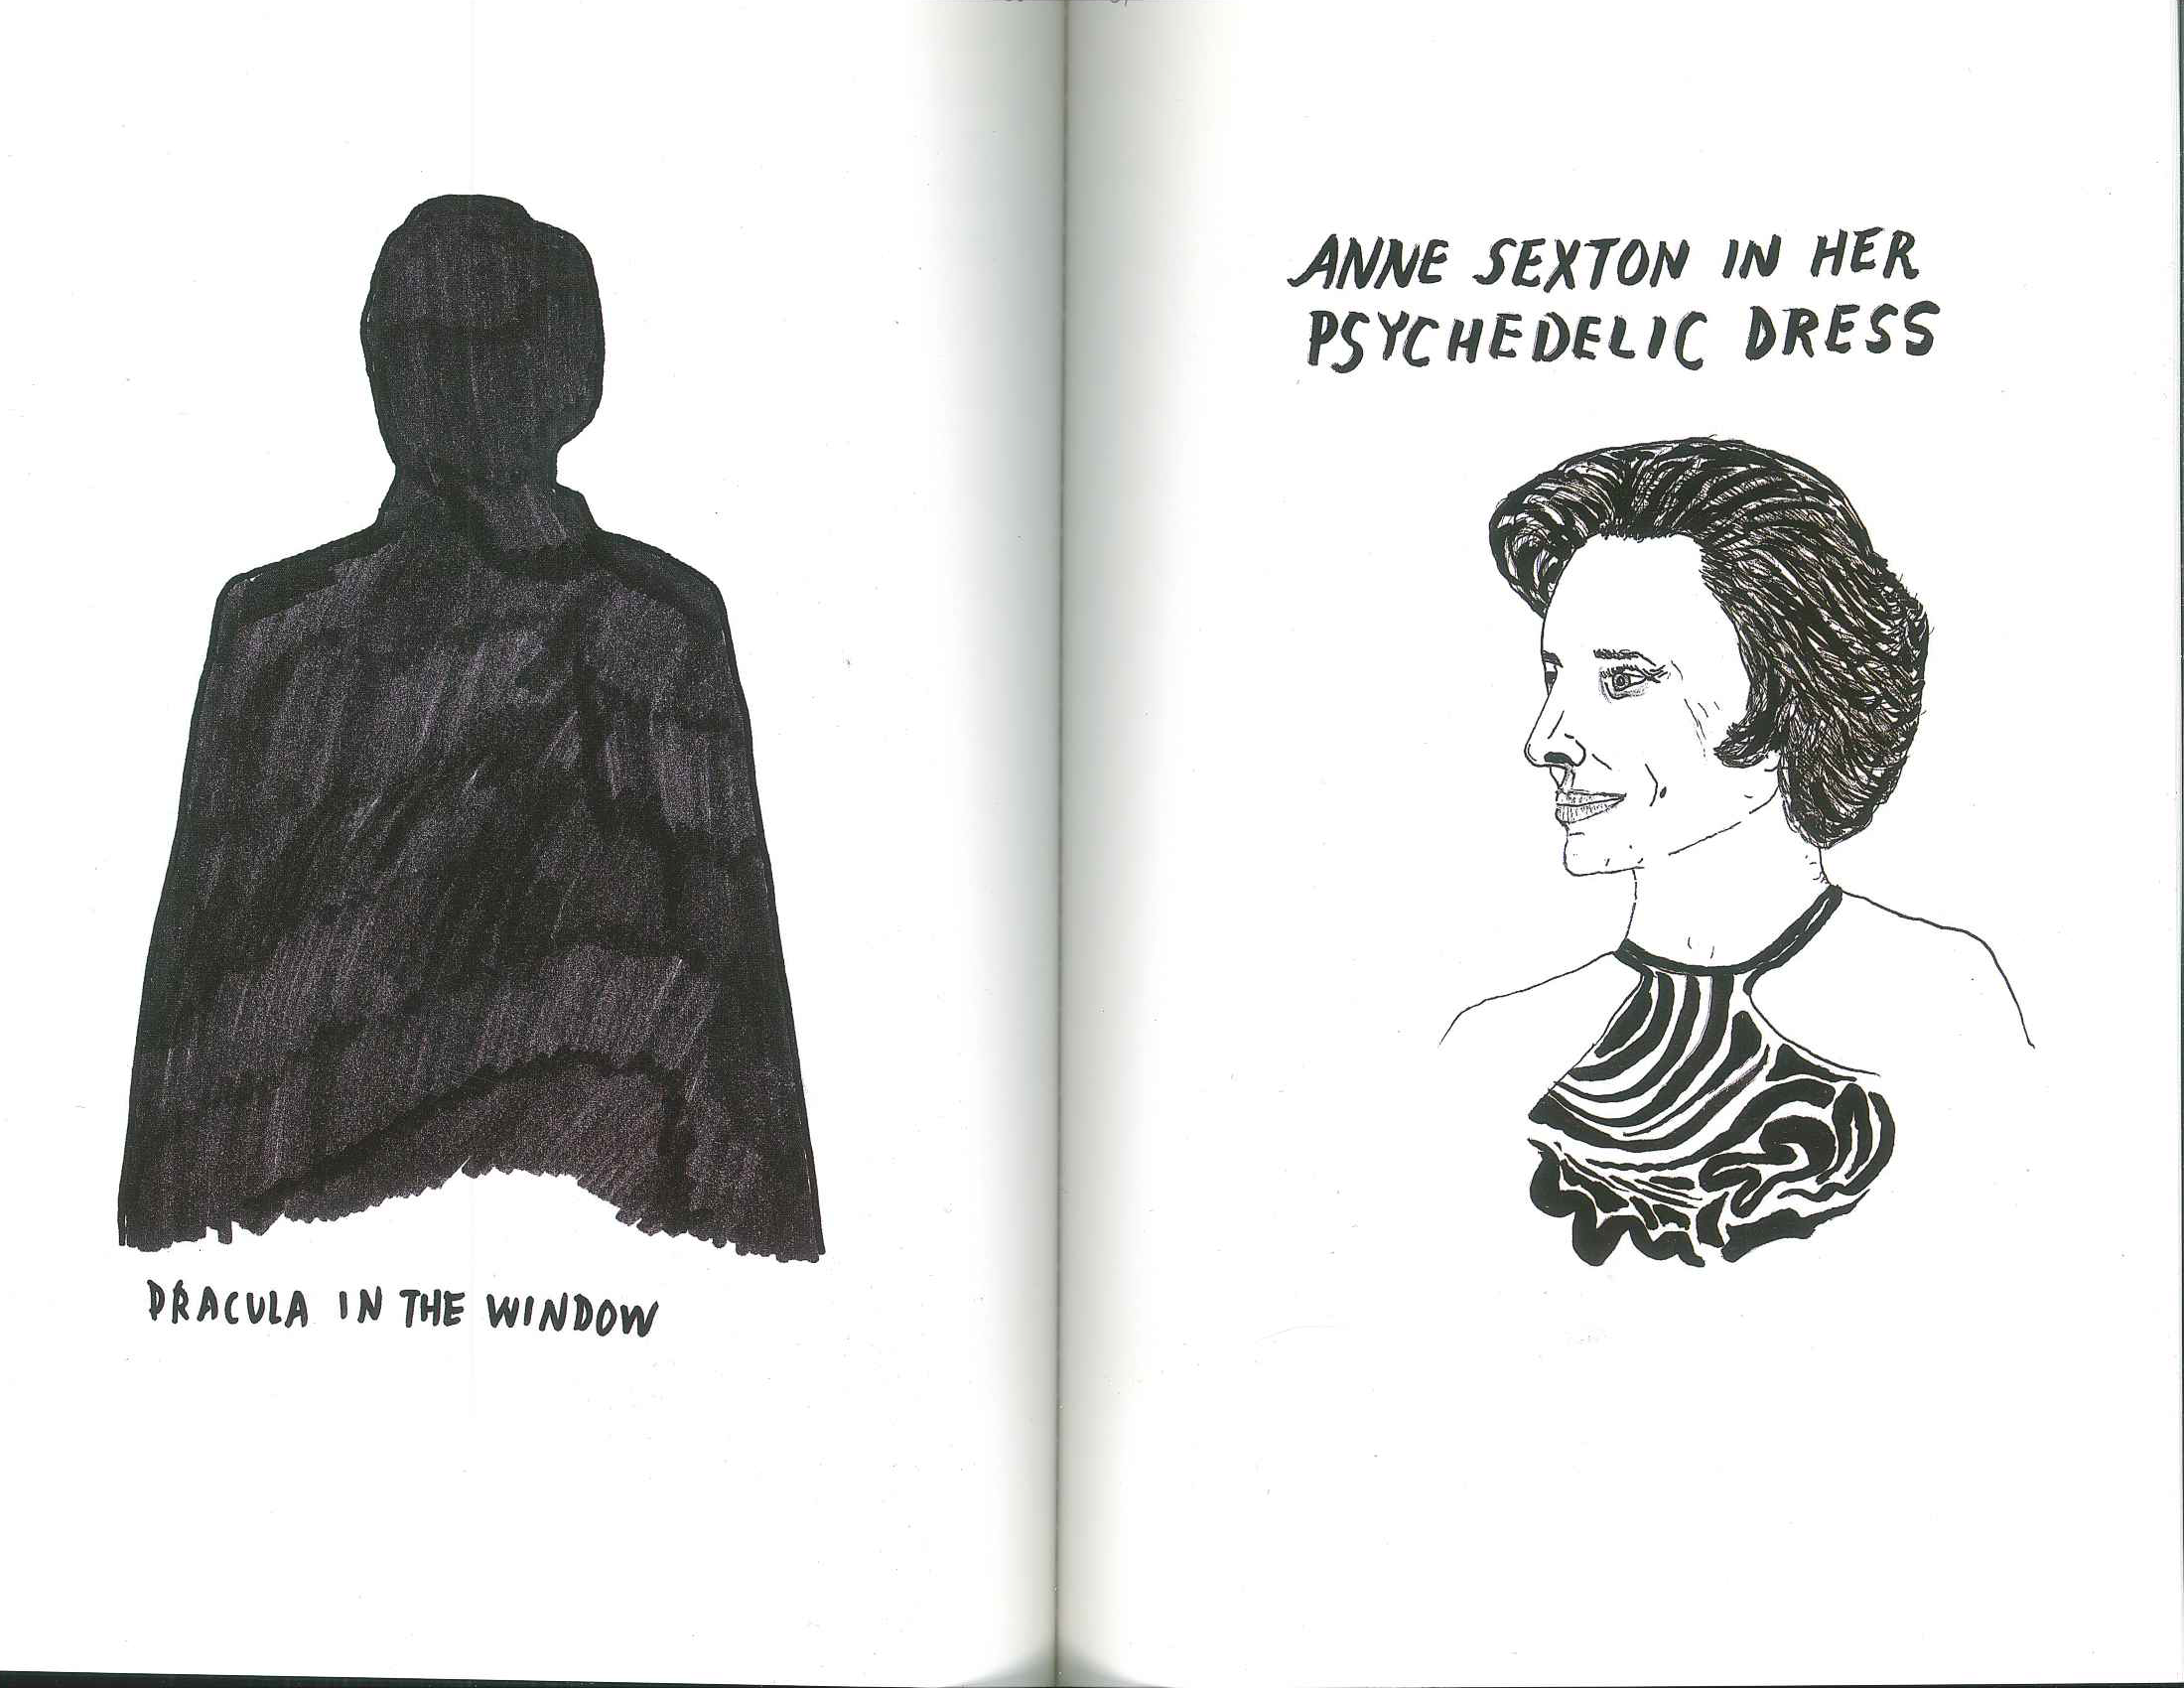 DRACULA IN THE WINDOW
ANNE SEXTON IN HER
PSYCHEDELIC DRESS